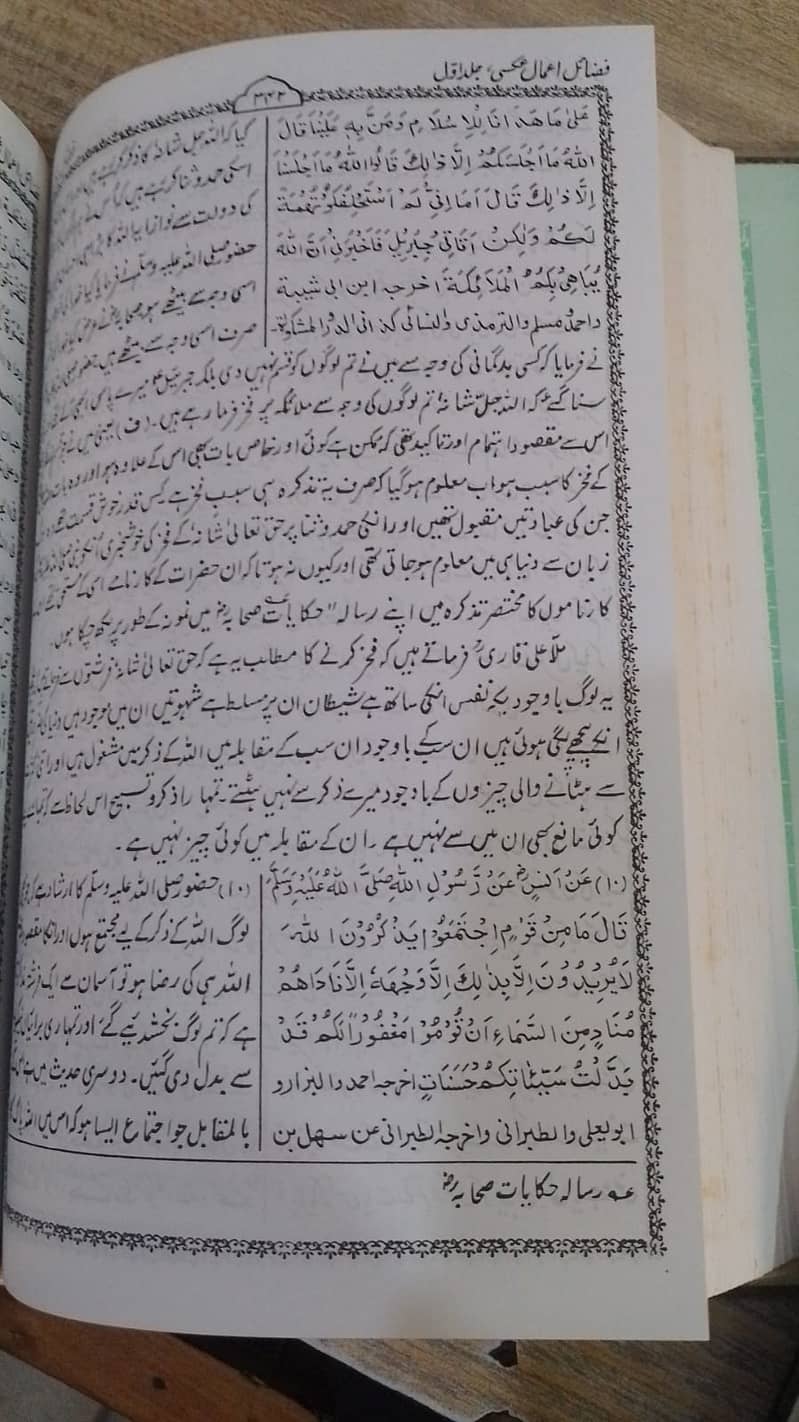 فضائل اعمال عکسی، جلد اول
۳۴۲
عَلىٰ مَا هَدَانَا لِلْاِسْلَامِ وَمَنَّ بِهٖ عَلَيْنَا قَالَ
اللهِ مَا اَجْلَسَكُمْ اِلَّا ذٰلِكَ قَالُوْا اللهِ مَا اَجْلَسَنَا
اِلَّا ذٰلِكَ قَالَ اَمَا اِنِّیْ لَمْ اَسْتَحْلِفْكُمْ تُهْمَةً
لَّكُمْ وَلٰكِنْ اَتَانِیْ جِبْرِيْلُ فَاَخْبَرَنِیْ اَنَّ اللهَ
يُبَاهِیْ بِكُمُ الْمَلَائِكَةَ اخرجه ابن ابی شيبة
واحمد ومسلم والترمذی والنسائی كذا فی الدر والمشكوٰة۔
گیا کہ اللہ جل شانہٗ کا ذکر کر
اسکی حمد و ثنا کرتے ہیں کہ اس
کی دولت سے نوازا یہ اللہ کا
حضور صلی اللہ علیہ وسلم نے فرمایا کیا خدا کی
اسی وجہ سے بیٹھے ہو صحابہؓ نے عرض کیا
صرف اسی وجہ سے بیٹھے ہیں حضور
نے فرمایا کہ کسی بدگمانی کی وجہ سے میں نے تم لوگوں کو قسم نہیں دی بلکہ جبرئیلؑ میرے پاس ابھی آئے
سنا گئے کہ اللہ جل شانہٗ تم لوگوں کی وجہ سے ملائکہ پر فخر فرما رہے ہیں۔ (ف) یعنی میں نے
اس سے مقصود اہتمام اور تاکید تھی کہ ممکن ہے کوئی اور خاص بات بھی اس کے علاوہ ہو اور وہ
کے فخر کا سبب ہو اب معلوم ہو گیا کہ صرف یہ تذکرہ ہی سبب فخر ہے کس قدر خوش قسمت تھے وہ
جن کی عبادتیں مقبول تھیں اور انکی حمد و ثنا پر حق تعالیٰ شانہٗ کے فخر کی خوشخبری انکو نبی
زبان سے دنیا ہی میں معلوم ہو جاتی تھی اور کیوں نہ ہوتا کہ ان حضرات کے کارنامے اسی کے مستحق تھے
کارناموں کا مختصر تذکرہ میں اپنے رسالہ "حکایات صحابہؓ" عہ میں نمونہ کے طور پر لکھ چکا ہوں۔
ملا علی قاریؒ فرماتے ہیں کہ فخر کرنے کا مطلب یہ ہے کہ حق تعالیٰ شانہٗ فرشتوں سے فرماتے ہیں
یہ لوگ باوجودیکہ نفس انکے ساتھ ہے شیطان ان پر مسلط ہے شہوتیں ان میں موجود ہیں دنیا کی
انکے پیچھے لگی ہوئی ہیں ان سب کے باوجود ان سب کے مقابلہ میں اللہ کے ذکر میں مشغول ہیں اور اتنی
سے ہٹانے والی چیزوں کے باوجود میرے ذکر سے نہیں ہٹتے۔ تمہارا ذکر و تسبیح اس لحاظ سے کہ
کوئی مانع بھی ان میں سے نہیں ہے ۔ ان کے مقابلہ میں کوئی چیز نہیں ہے۔
(۱۰) عَنْ اَنَسٍؓ عَنْ رَّسُوْلِ اللهِ صَلَّی اللهُ عَلَيْهِ وَسَلَّمَ
قَالَ مَا مِنْ قَوْمٍ اِجْتَمَعُوْا يَذْكُرُوْنَ اللهَ
لَا يُرِيْدُوْنَ بِذٰلِكَ اِلَّا وَجْهَهٗ اِلَّا نَادَاهُمْ
مُنَادٍ مِنَ السَّمَاءِ اَنْ قُوْمُوْا مَغْفُوْرًا لَّكُمْ قَدْ
بُدِّلَتْ سَيِّئَاتِكُمْ حَسَنَاتٍ اخرجه احمد والبزار و
ابو يعلى والطبرانی واخرجه الطبرانی عن سهل بن
(۱۰) حضور صلی اللہ علیہ وسلم کا ارشاد ہے کہ
لوگ اللہ کے ذکر کے لیے مجتمع ہوں اور انکا مقصود
اللہ ہی کی رضا ہو تو آسمان سے ایک فرشتہ
ہے کہ تم لوگ بخشدیئے گئے اور تمہاری برائیاں
سے بدل دی گئیں۔ دوسری حدیث میں ہے
بالمقابل جو اجتماع ایسا ہو کہ اس میں اللہ
عہ رسالہ حکایات صحابہؓ